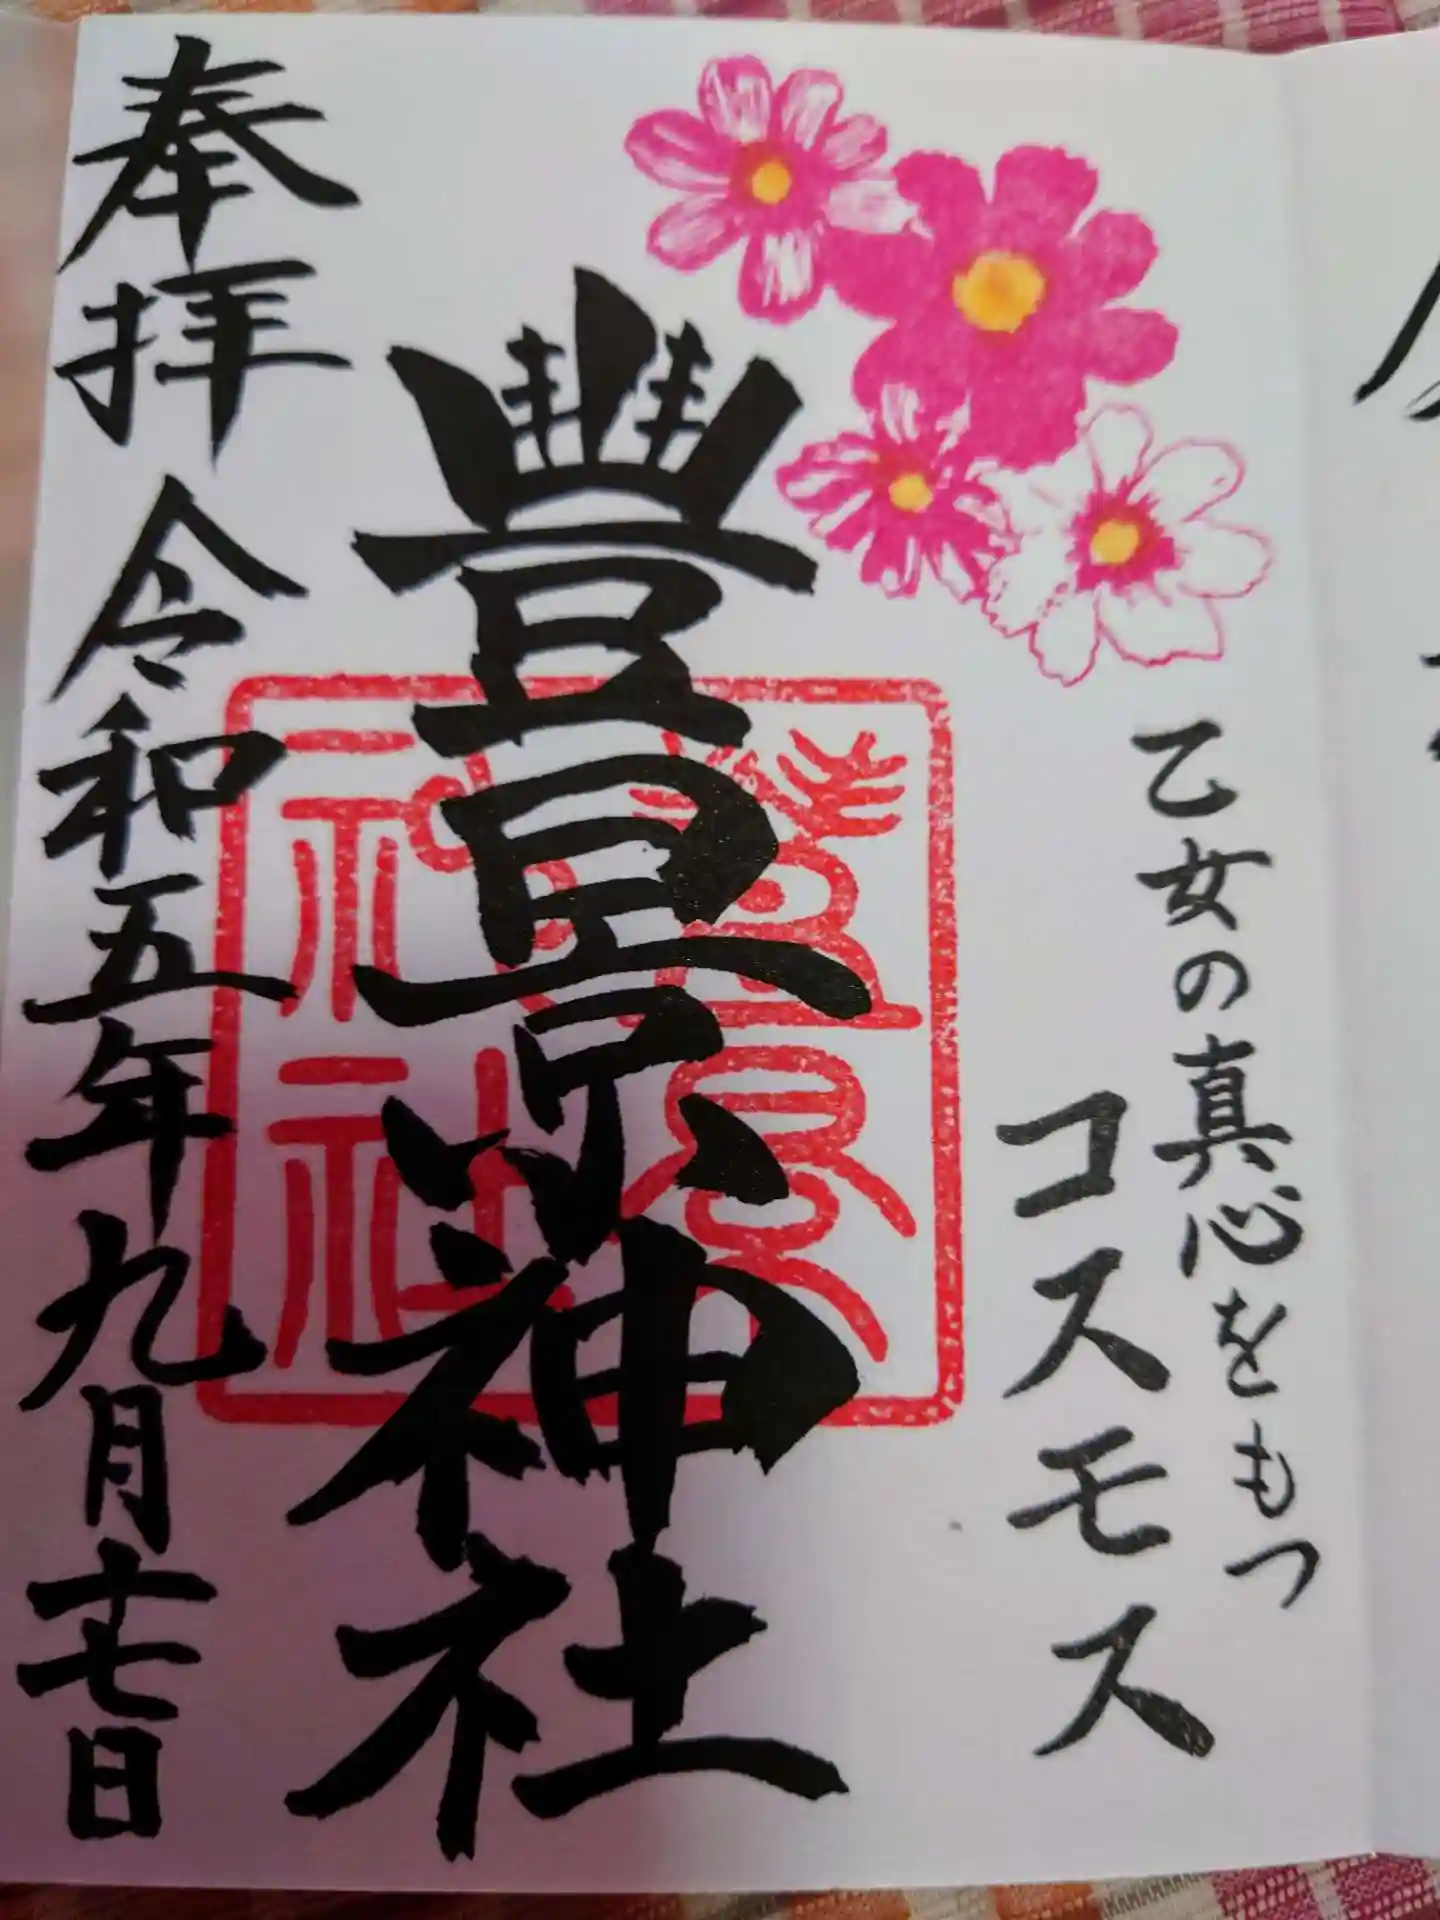 乙女の真心をもつ
コスモス
豊景神社
豊景神社
奉拝 令和五年九月十七日